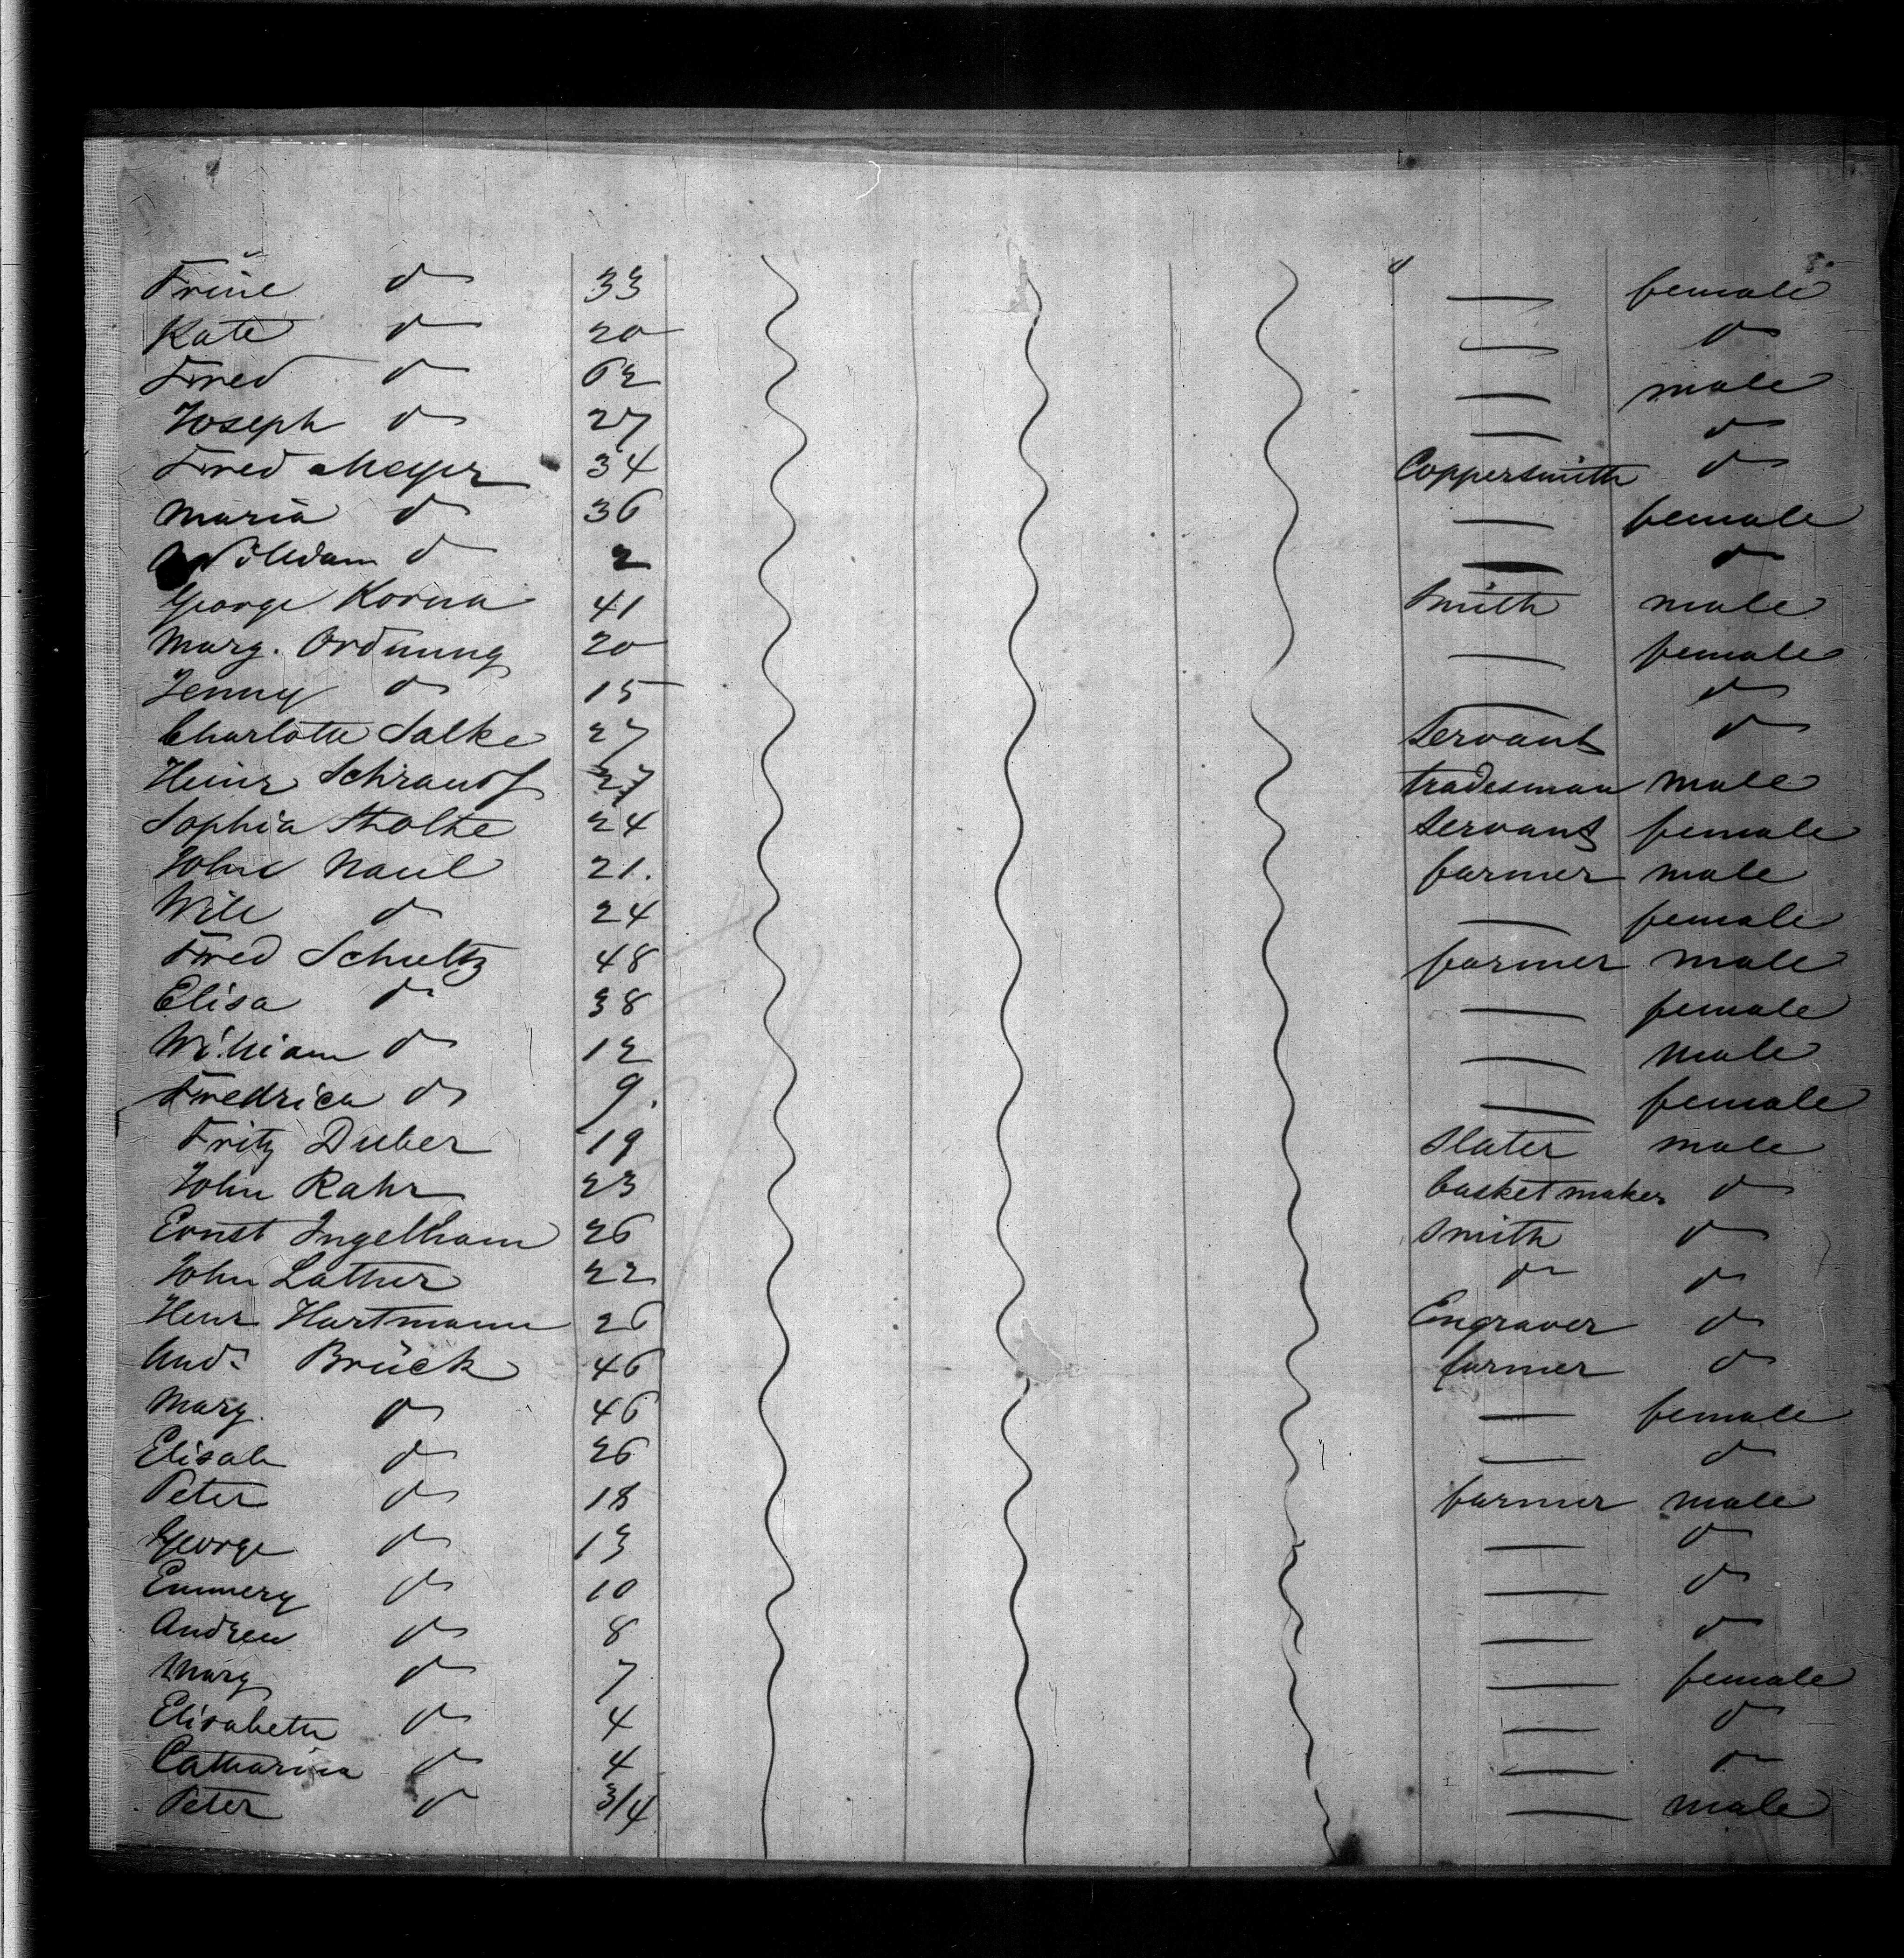 Trine do 33 — female
Kate do 20 — do
Fred do 62 — male
Joseph do 27 — do
Fred Meyer 34 Coppersmith do
Maria do 36 — female
William do 2 — do
George Korna 41 Smith male
Marg. Ordnung 20 — female
Jenny do 15 — do
Charlotte Salke 27 Servant do
Heinr Schrauof 27 tradesman male
Sophia Stolte 24 Servant female
John Naul 21. farmer male
Will do 24 — female
Fred Schultz 48 farmer male
Elisa do 38 — female
William do 12 — male
Fredrica do 9. — female
Fritz Duber 19 Slater male
John Rahr 23 basketmaker do
Ernst Ingelham 26 Smith do
John Lather 22 do do
Henr Hartmann 26 Engraver do
And. Brück 46 farmer do
Marg. do 46 — female
Elisab do 26 — do
Peter do 18 farmer male
George do 13 — do
Emmery do 10 — do
Andrew do 8 — do
Marg do 7 — female
Elisabeth do 4 — do
Catharina do 4 — do
Peter do 3/4 — male